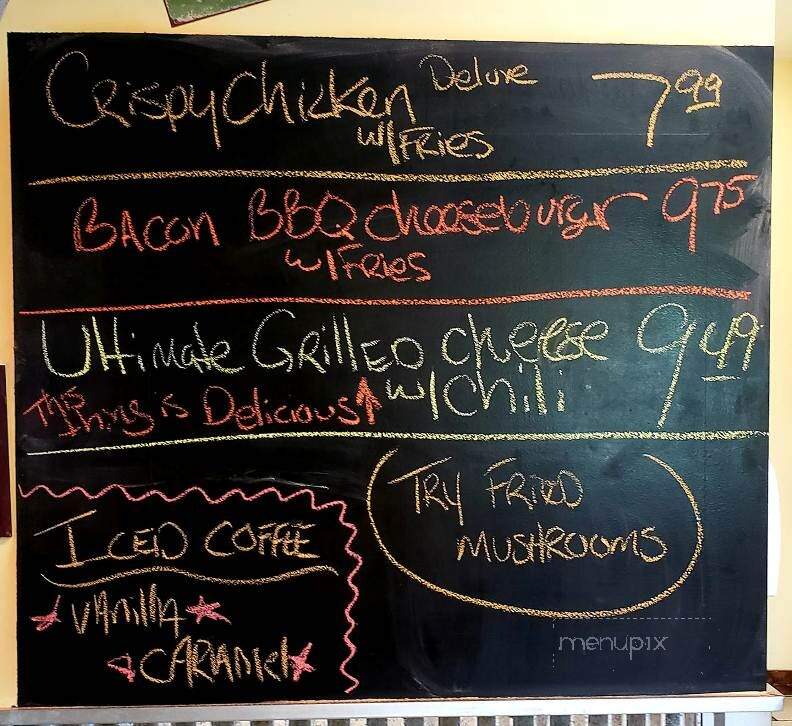 Crispy Chicken Deluxe 7.99
w/ Fries
Bacon BBQ cheeseburger 9.75
w/ Fries
Ultimate Grilled cheese 9.49
w/ Chili
This thing is Delicious ↑
Try Fried
Mushrooms
Iced Coffee
Vanilla
Caramel
menupix